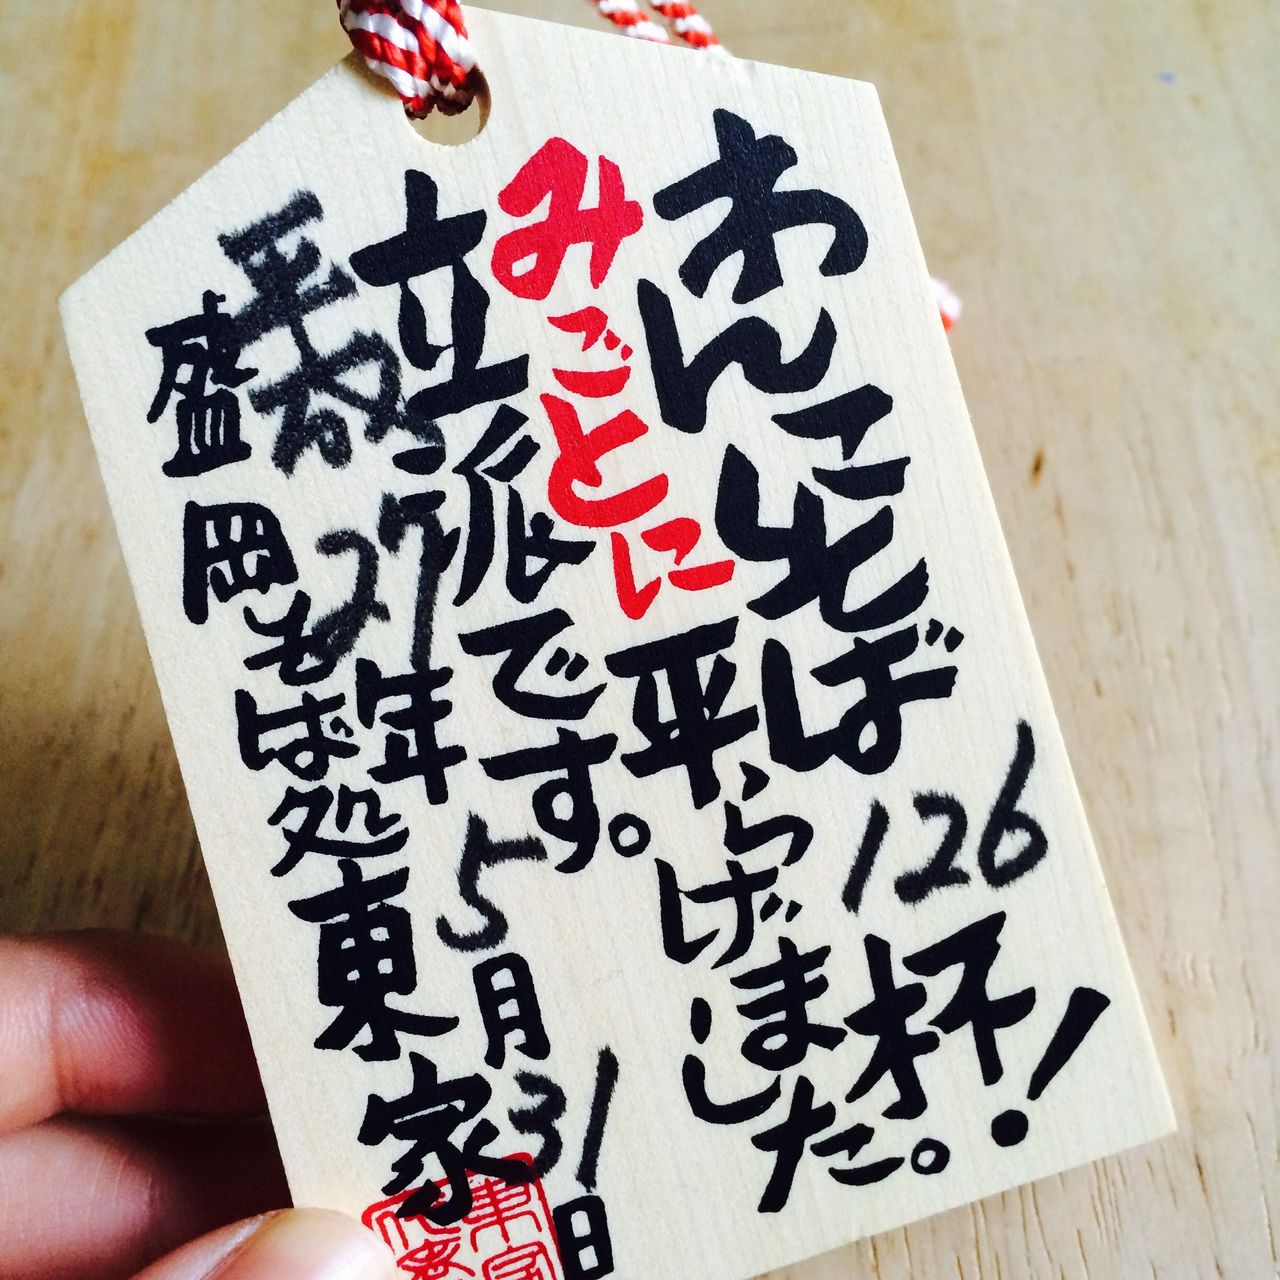 わんこそば 126 杯!
みごとに平らげました。
立派です。
平成27年5月31日
盛岡そば処東家